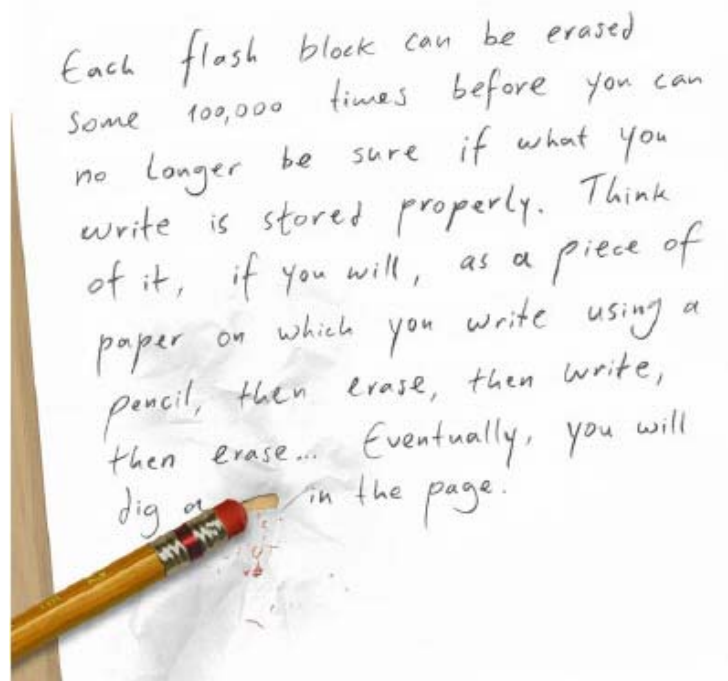 Each flash block can be erased
some 100,000 times before you can
no longer be sure if what you
write is stored properly. Think
of it, if you will, as a piece of
paper on which you write using a
pencil, then erase, then write,
then erase... Eventually, you will
dig a in the page.